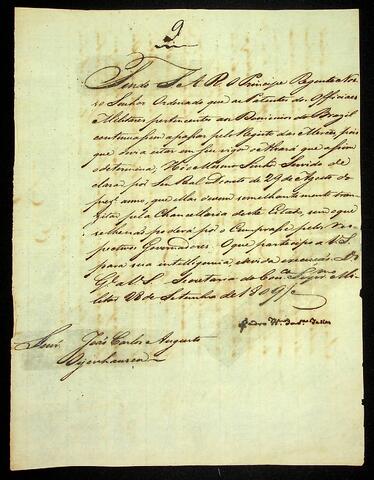 9
Tendo S. A. R. O Principe Regente Nos-
so Senhor Ordenado que as Patentes dos Officiaes
Militares pertencentes aos Dominios do Brazil
continuassem a pagar pelo Registo das Mercês, pois
que devia estar em seu vigor o Alvará que assim o
determina: He o Mesmo Senhor Servido de
clarar por Seu Real Decreto de 29 de Agosto do
prez. anno, que ellas devem semelhantemente tran-
zitar pela Chancellaria deste Estado, sem o que
se lhes não poderá pôr o Cumpra-se pelos res-
pectivos Governadores. O que participo a V. S.
para sua intelligencia, e devida execução. Ds.
Ge. a V. S. Secretaria do Conso.
litar 28 de Setembro de 1809
Senr. João Carlos Augusto
Oyenhausen